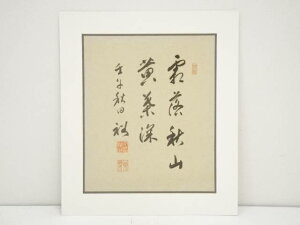 霜落秋山
黄葉深
壬午秋日